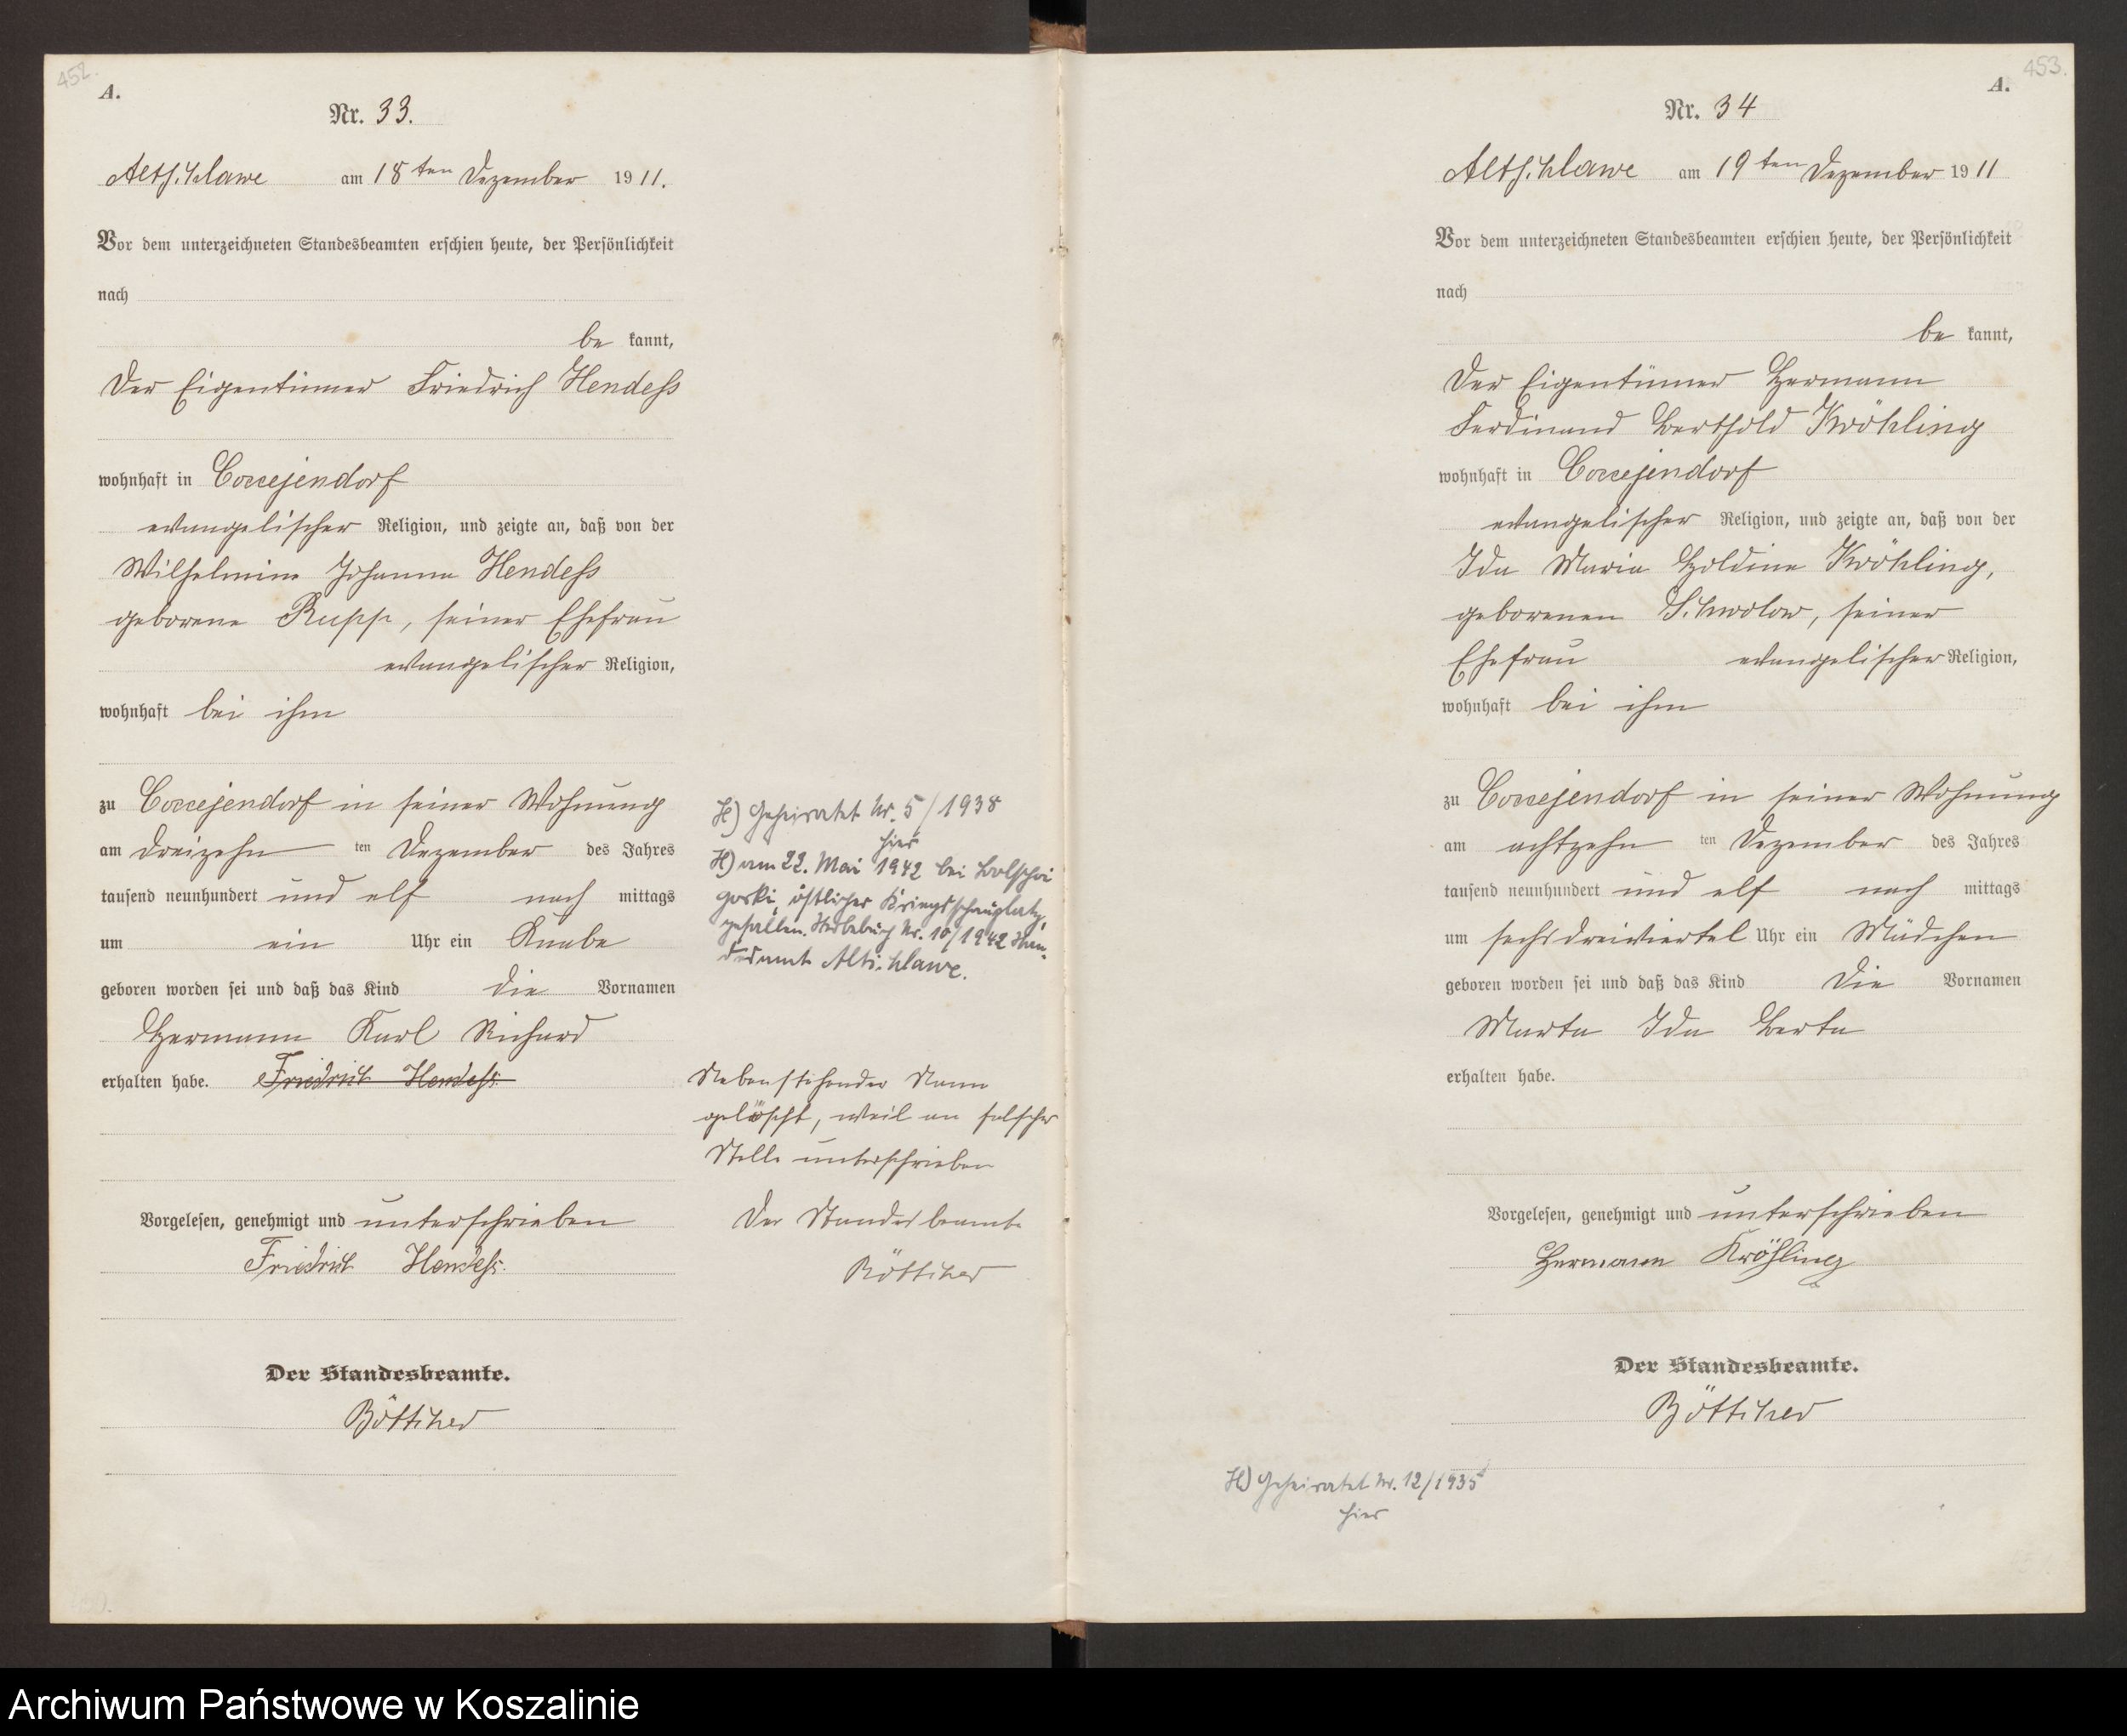 452.
A.
Nr. 33.
Altschlawe am 18 ten Dezember 1911.
Vor dem unterzeichneten Standesbeamten erschien heute, der Persönlichkeit
nach
be kannt,
der Eigentümer Friedrich Hendeß
wohnhaft in Coccejendorf
evangelischer Religion, und zeigte an, daß von der
Wilhelmine Johanna Hendeß
geborene Rupp, seiner Ehefrau
evangelischer Religion,
wohnhaft bei ihm
zu Coccejendorf in seiner Wohnung
am dreizehn ten Dezember des Jahres
tausend neunhundert und elf nach mittags
um ein Uhr ein Knabe
geboren worden sei und daß das Kind die Vornamen
Hermann Karl Richard
erhalten habe. Friedrich Hendeß
Vorgelesen, genehmigt und unterschrieben
Friedrich Hendeß.
Der Standesbeamte.
Böttcher
H) Geheiratet Nr. 5/1938
hier
H) am 22. Mai 1942 bei
gorki, östlicher Kriegsschauplatz,
gefallen. Sterbebuch Nr. 10/1942 Stan-
desamt Altschlawe.
Nebenstehender Name
gelöscht, weil an falscher
Stelle unterschrieben
Der Standesbeamte
Böttcher
453.
A.
Nr. 34
Altschlawe am 19 ten Dezember 1911
Vor dem unterzeichneten Standesbeamten erschien heute, der Persönlichkeit
nach
be kannt,
der Eigentümer Hermann
Ferdinand Berthold Kröhling
wohnhaft in Coccejendorf
evangelischer Religion, und zeigte an, daß von der
Ida Maria Holdine Kröhling,
geborenen Schwolow, seiner
Ehefrau evangelischer Religion,
wohnhaft bei ihm
zu Coccejendorf in seiner Wohnung
am achtzehn ten Dezember des Jahres
tausend neunhundert und elf nach mittags
um sechsdreiviertel Uhr ein Mädchen
geboren worden sei und daß das Kind die Vornamen
Marta Ida Berta
erhalten habe.
Vorgelesen, genehmigt und unterschrieben
Hermann Kröhling
Der Standesbeamte.
Böttcher
H) Geheiratet Nr. 12/1935
hier
Archiwum Państwowe w Koszalinie